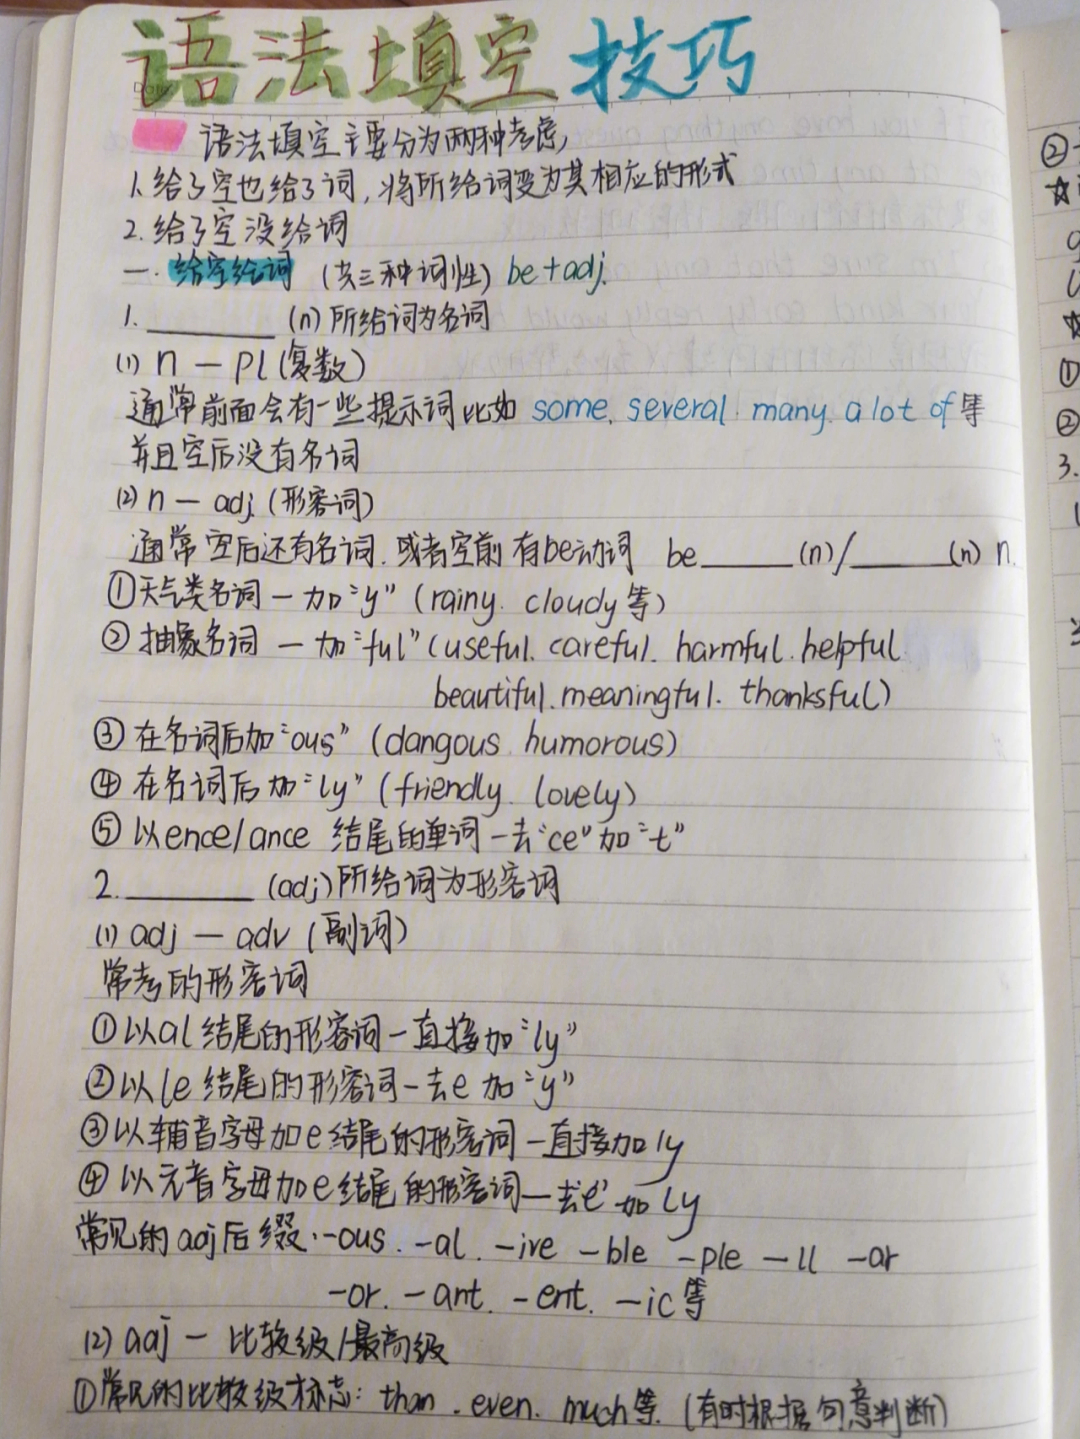 语法填空技巧
语法填空主要分为两种考虑,
1.给了空也给了词,将所给词变为其相应的形式
2.给了空没给词
一.给空给词 (共三种词性) be+adj.
1.________ (n)所给词为名词
(1) n — pl (复数)
通常前面会有一些提示词比如 some. several. many. a lot of等
并且空后没有名词
(2) n — adj. (形容词)
通常空后还有名词.或者空前有be动词 be______(n)/______(n) n.
①天气类名词—加"y" (rainy. cloudy等)
②抽象名词 — 加"ful" (useful. careful. harmful. helpful.
beautiful. meaningful. thanksful)
③在名词后加"ous" (dangous humorous)
④在名词后加"ly" (friendly. lovely)
⑤以ence/ance 结尾的单词—去"ce"加"t"
2.________ (adj)所给词为形容词
(1) adj — adv (副词)
常考的形容词
①以al结尾的形容词—直接加"ly"
②以le结尾的形容词—去e加"y"
③以辅音字母加e结尾的形容词—直接加ly
④以元音字母加e结尾的形容词—去"e"加ly
常见的adj后缀:-ous. -al. -ive -ble -ple -ll -ar
-or. -ant. -ent. -ic等
(2) adj — 比较级/最高级
①常见的比较级标志: than. even. much等. (有时根据句意判断)
②
3.
①
②